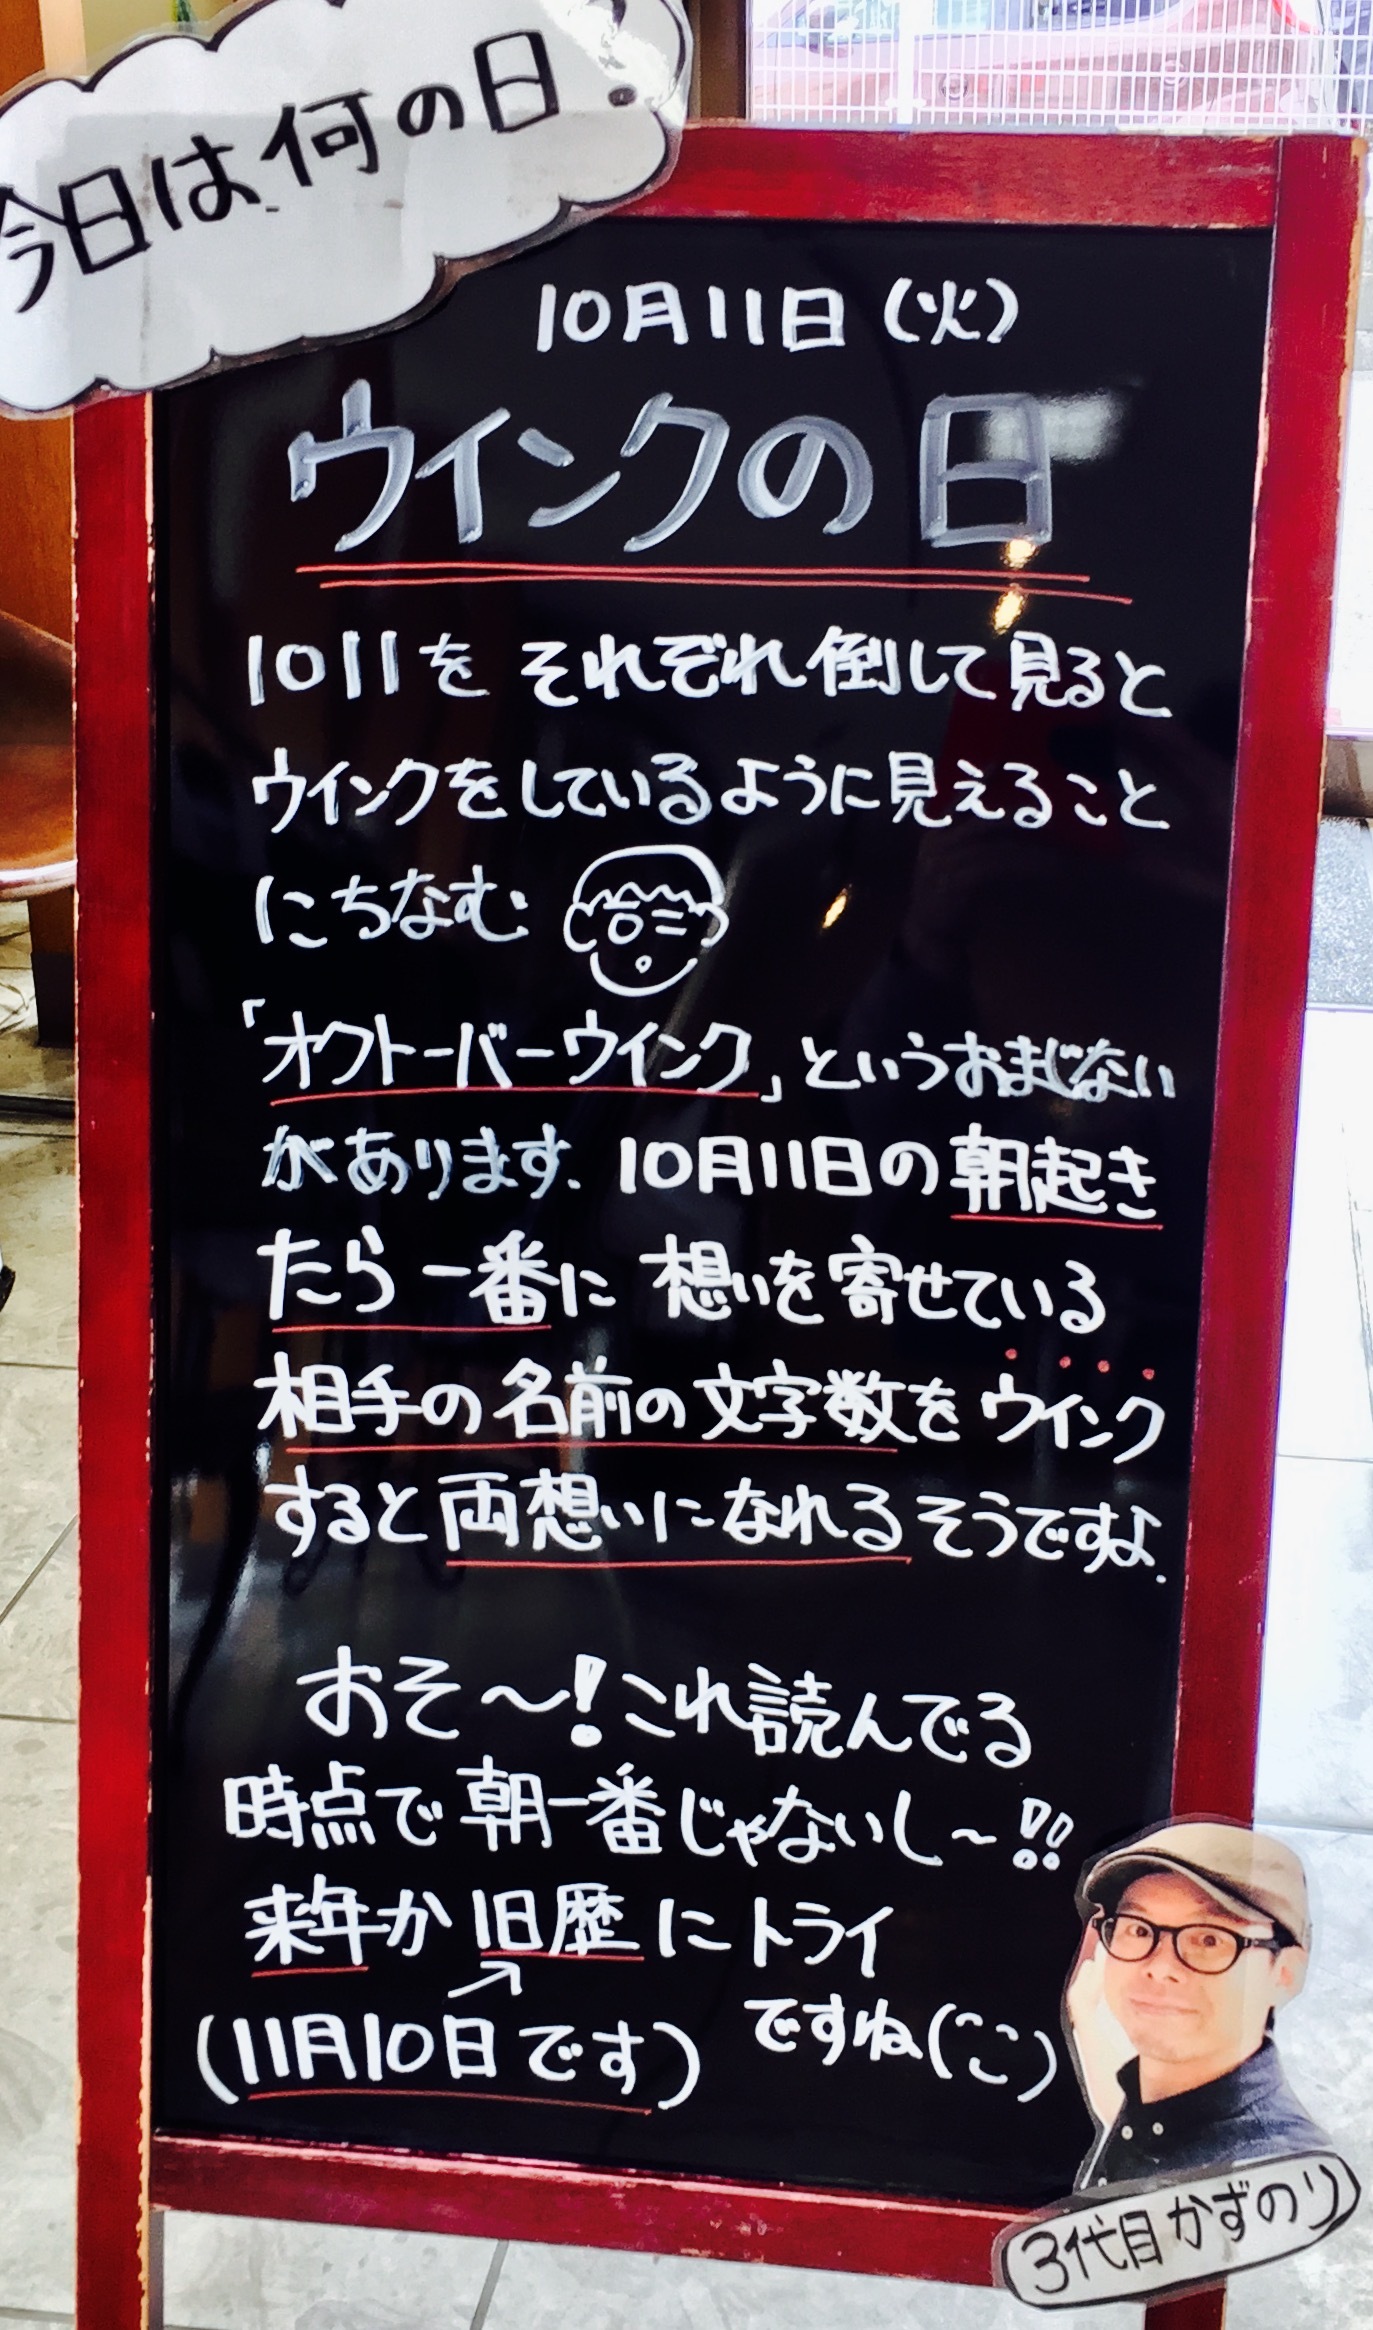 今日は何の日
10月11日(火)
ウインクの日
1011をそれぞれ倒して見ると
ウインクをしているように見えること
にちなむ
「オクトーバーウインク」というおまじない
があります。10月11日の朝起き
たら一番に想いを寄せている
相手の名前の文字数をウインク
すると両想いになれるそうですよ.
おそ〜!これ読んでる
時点で朝一番じゃないし〜!!
来年か旧歴にトライ
(11月10日です) ですね(^こ)
3代目かずのり